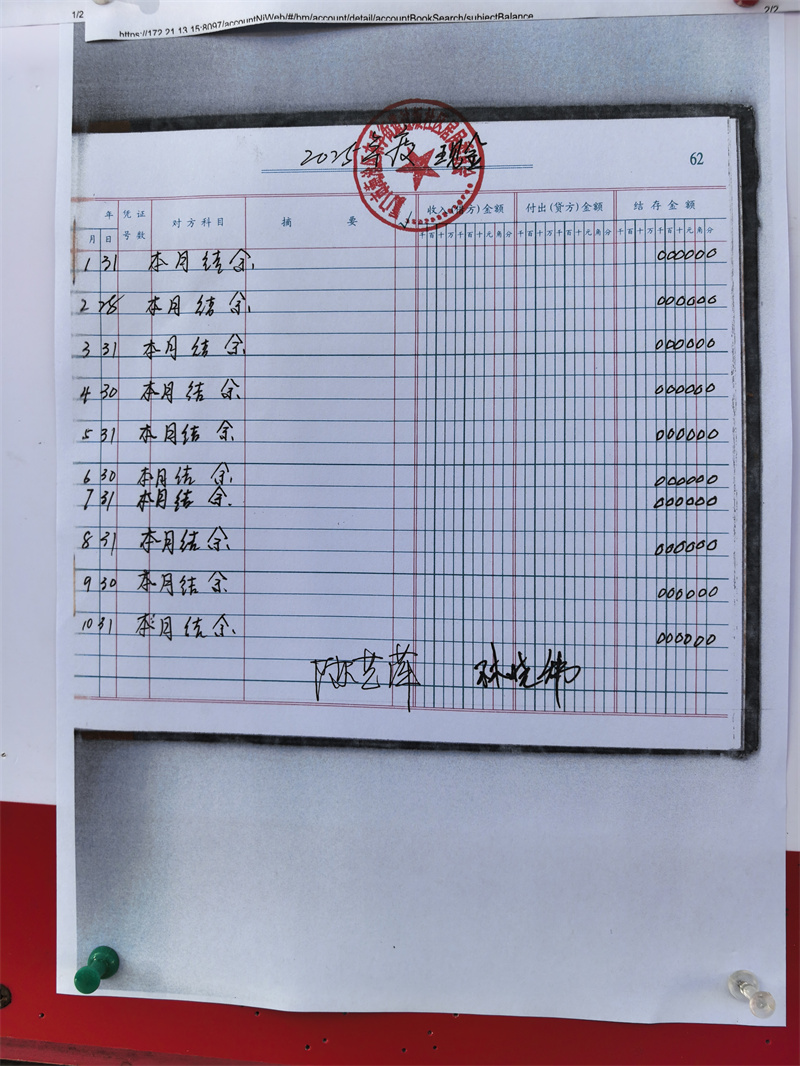 1/2
2/2
https://172.21.13.15:8097/accountNiWeb/#/bm/account/detail/accountBookSearch/subjectBalance
2025年度 现金
62
年 凭证 对方科目 摘要 收入(借方)金额 付出(贷方)金额 结存金额
月 日 号数 千百十万千百十元角分 千百十万千百十元角分 千百十万千百十元角分
1 31 本月结余 000000
2 28 本月结余 000000
3 31 本月结余 000000
4 30 本月结余 000000
5 31 本月结余 000000
6 30 本月结余 000000
7 31 本月结余 000000
8 31 本月结余 000000
9 30 本月结余 000000
10 31 本月结余 000000
林晓伟